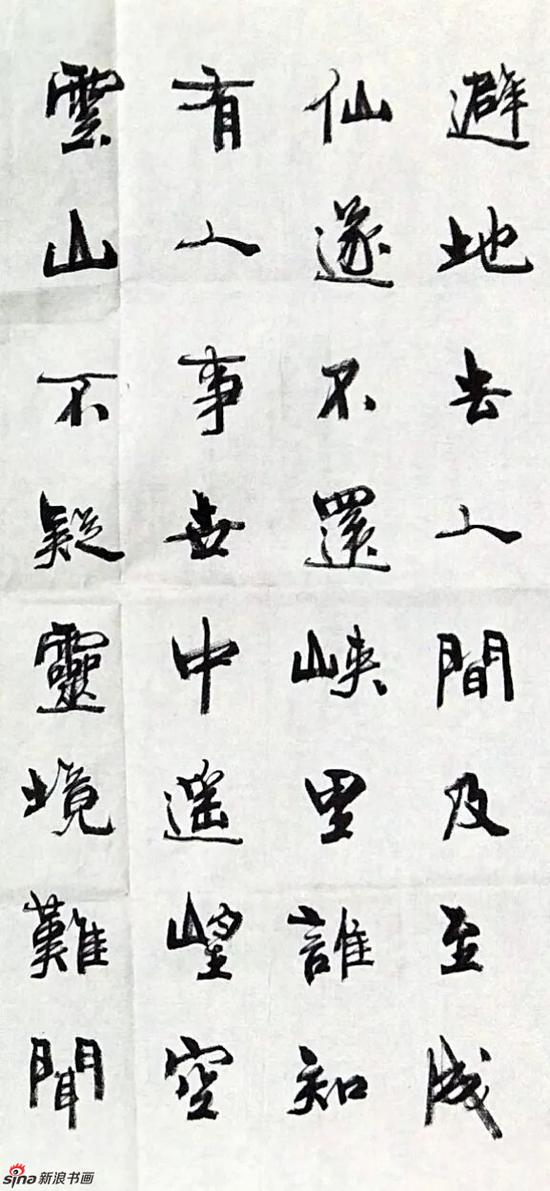 避地去人間及至成
仙遂不還峽里誰知
有人事世中遥望空
雲山不疑靈境難聞
sina新浪书画